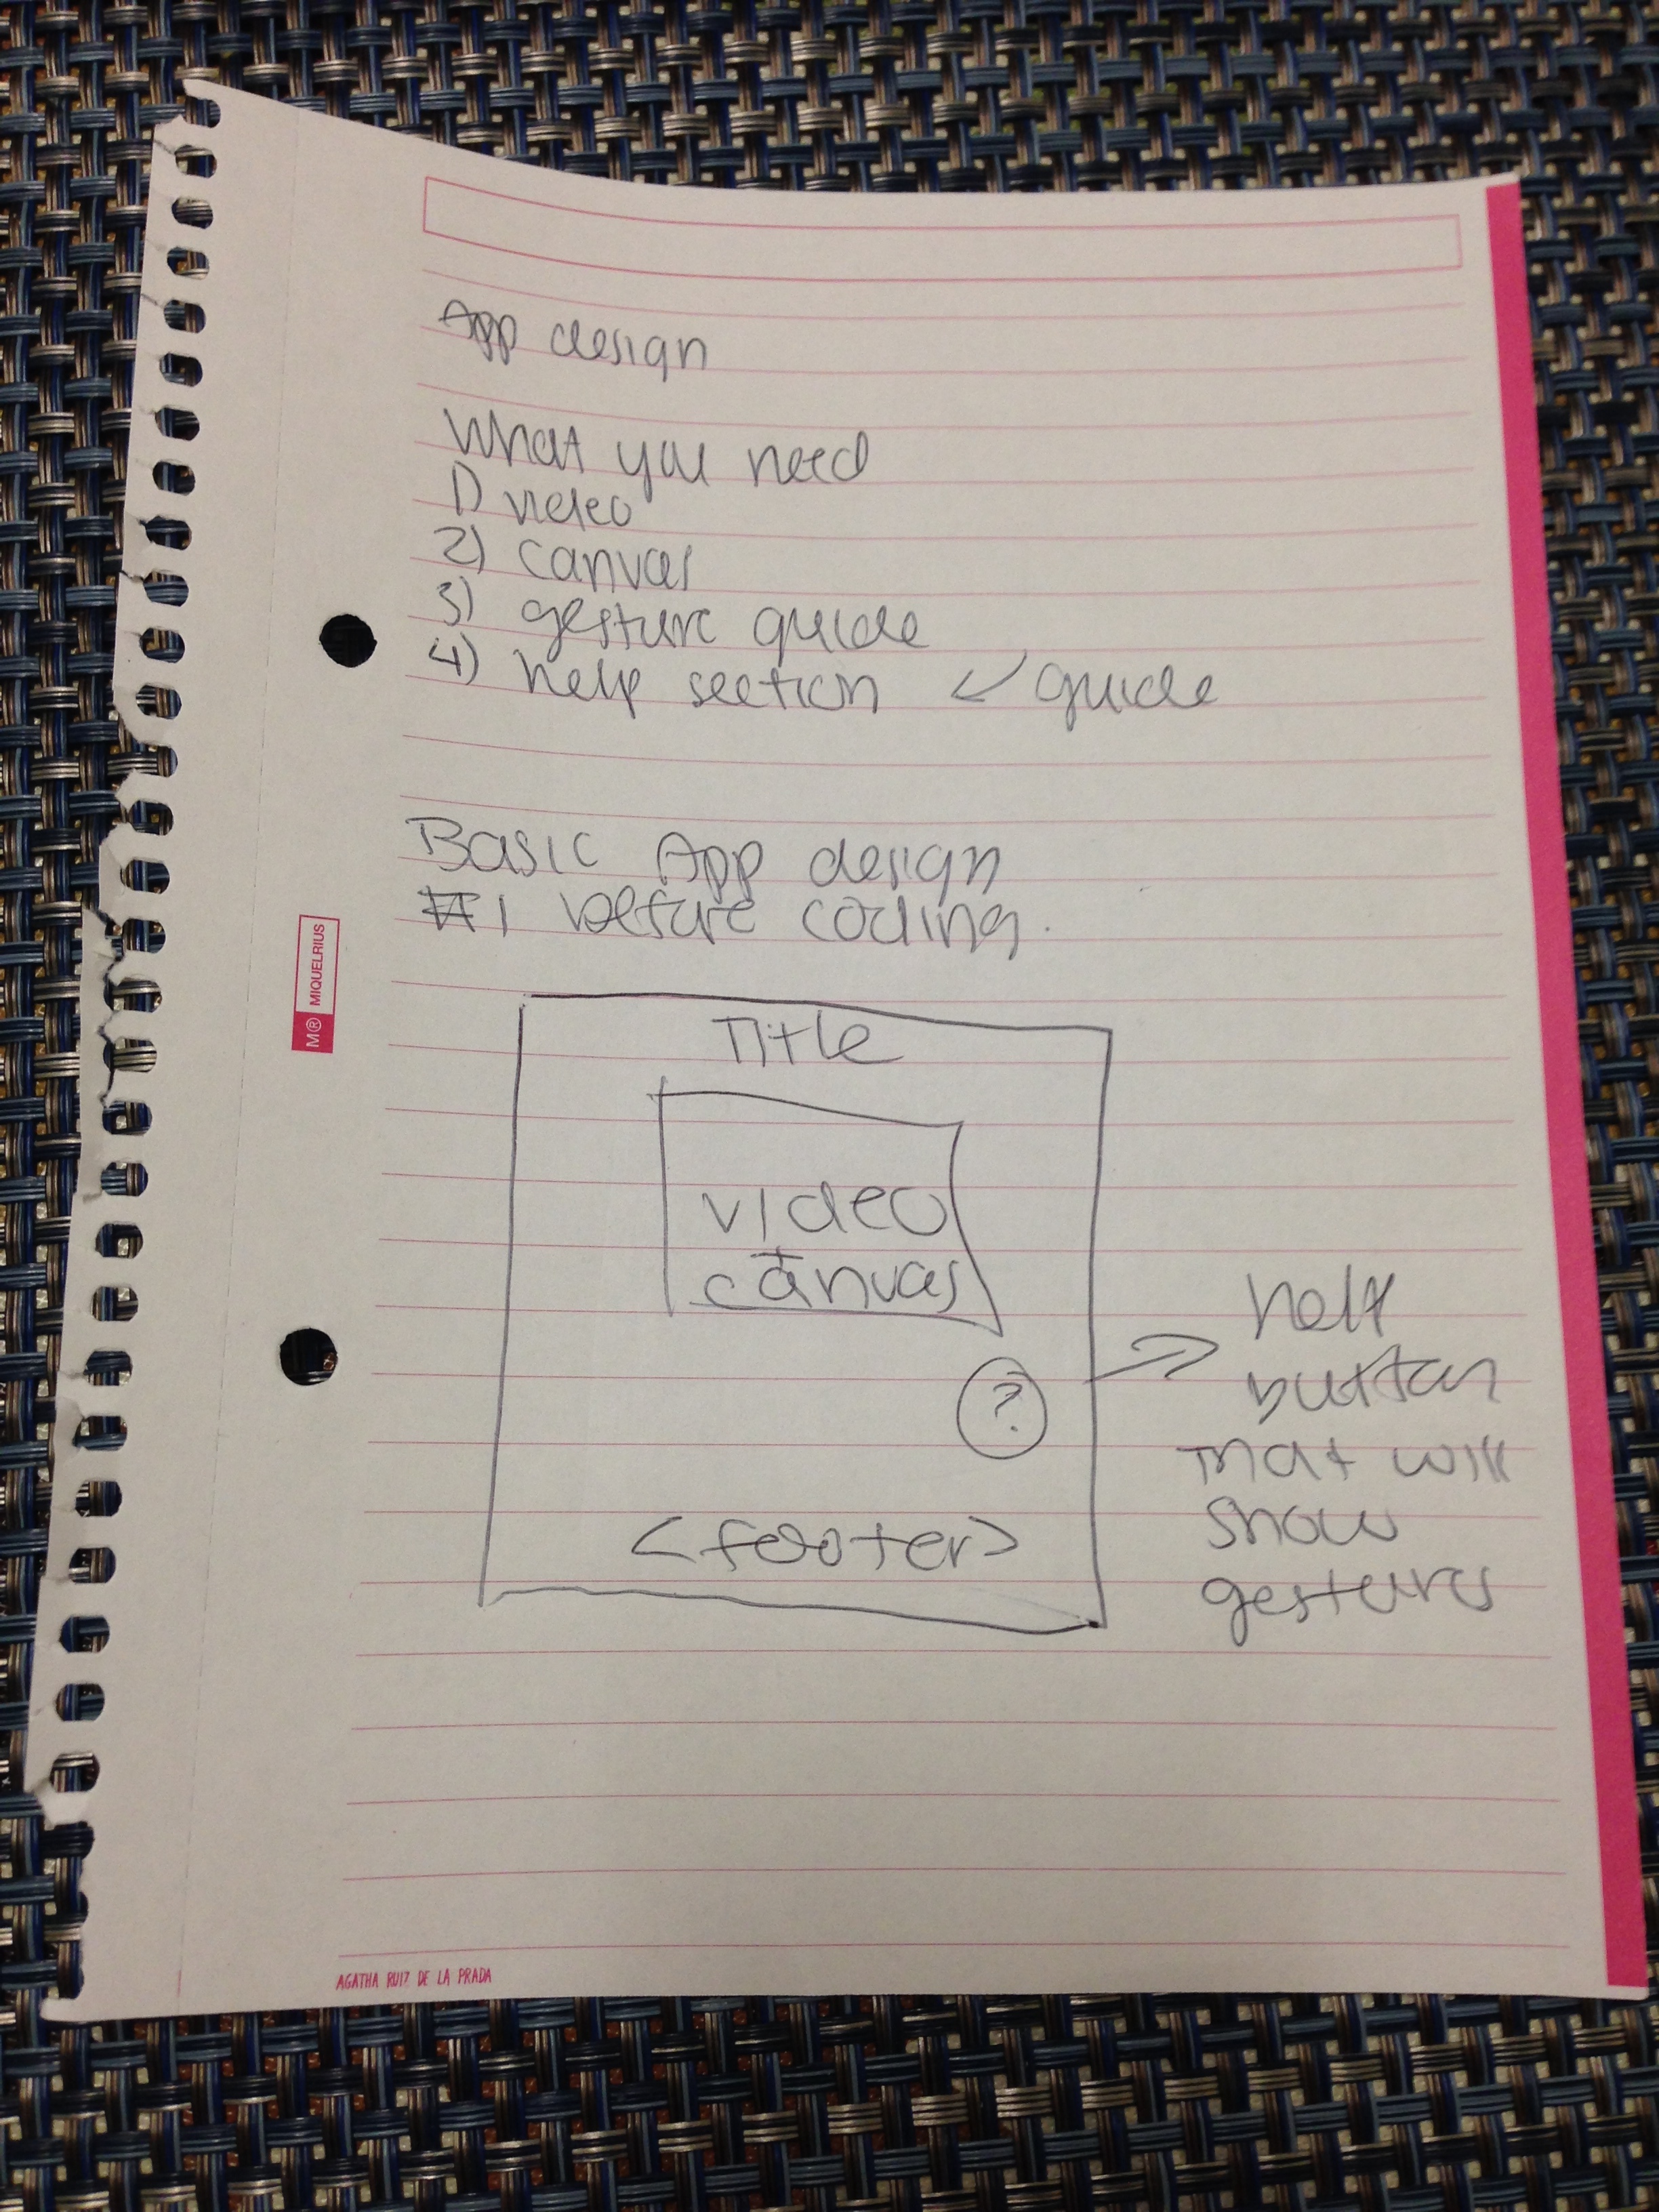 App design
What you need
1) video
2) canvas
3) gesture guide
4) help section ↙ guide
Basic App design
#1 before coding.
Title
video
+
canvas
?
<footer>
help
button
that will
show
gestures
M® MIQUELRIUS
AGATHA RUIZ DE LA PRADA